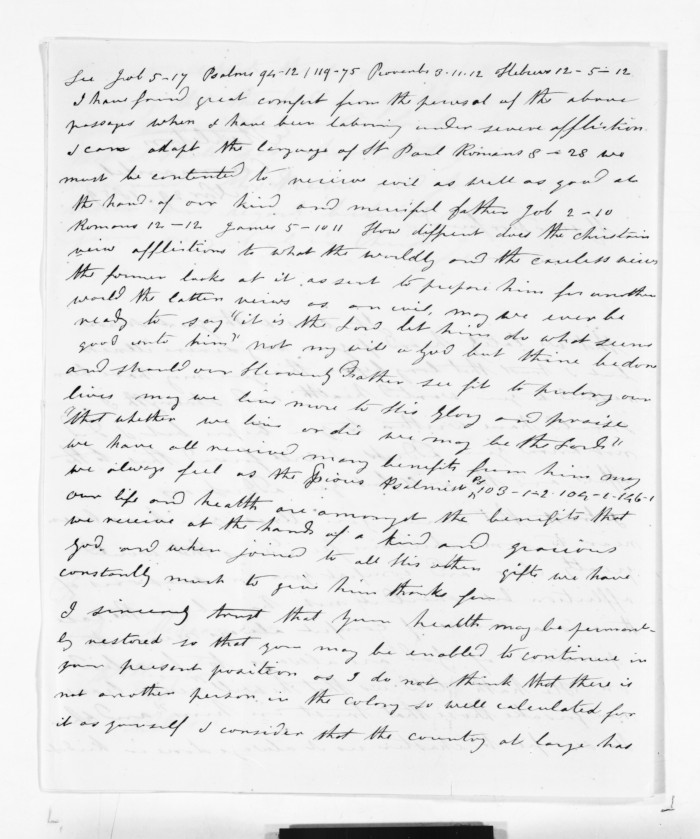 See Job 5-17 Psalms 94-12 / 119-75 Proverbs 3.11.12 Hebrews 12-5-12
I have found great comfort from the perusal of the above
passages when I have been laboring under severe affliction.
I can adapt the language of St Paul Romans 8-28 we
must be contented to receive evil as well as good at
the hand of our kind and merciful father Job 2-10
Romans 12-12 James 5-10 11 How different does the christain
view afflictions to what the worldly and the careless views
the former looks at it as sent to prepare him for another
world the latter views as an evil, may we ever be
ready to say "it is the Lord let him do what seems
good unto him" not my will o God but thine be done
and should our Heavenly Father see fit to prolong our
lives may we live more to His Glory and praise
"that whether we live or die we may be the Lords"
we have all received many benefits from him may
we always feel as the Pious Psalmist Ps 103-1-2. 104-1-146-1
our life and health are amongst the benefits that
we receive at the hands of a kind and gracious
God and when joined to all His other gifts we have
constantly much to give him thanks for
I sincerely trust that your health may be permant-
ly restored so that you may be enabled to continue in
your present position as I do not think that there is
not another person in the colony so well calculated for
it as yourself I consider that the country at large has